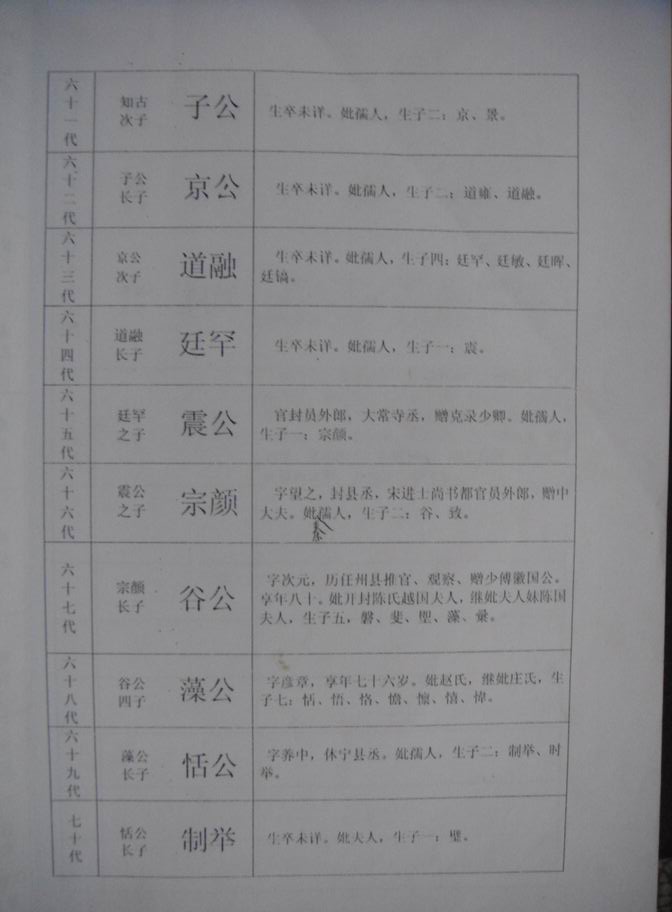 六十一代 知古次子 子公 生卒未详。妣孺人，生子二：京、景。
六十二代 子公长子 京公 生卒未详。妣孺人，生子二：道雍、道融。
六十三代 京公次子 道融 生卒未详。妣孺人，生子四：廷罕、廷敏、廷晖、
廷镐。
六十四代 道融长子 廷罕 生卒未详。妣孺人，生子一：震。
六十五代 廷罕之子 震公 官封员外郎，大常寺丞，赠克录少卿。妣孺人，
生子一：宗颜。
六十六代 震公之子 宗颜 字望之，封县丞，宋进士尚书都官员外郎，赠中
大夫。妣孺人，生子二：谷、致。
六十七代 宗颜长子 谷公 字次元，历任州县推官、观察、赠少傅徽国公。
享年八十。妣开封陈氏越国夫人，继妣夫人妹陈国
夫人，生子五，磐、斐、聖、藻、彙。
六十八代 谷公四子 藻公 字彦章，享年七十六岁。妣赵氏，继妣庄氏，生
子七：恬、悟、恪、憺、懔、憘、愇。
六十九代 藻公长子 恬公 字养中，休宁县丞。妣孺人，生子二：制举、时
举。
七十代 恬公长子 制举 生卒未详。妣夫人，生子一：璧。